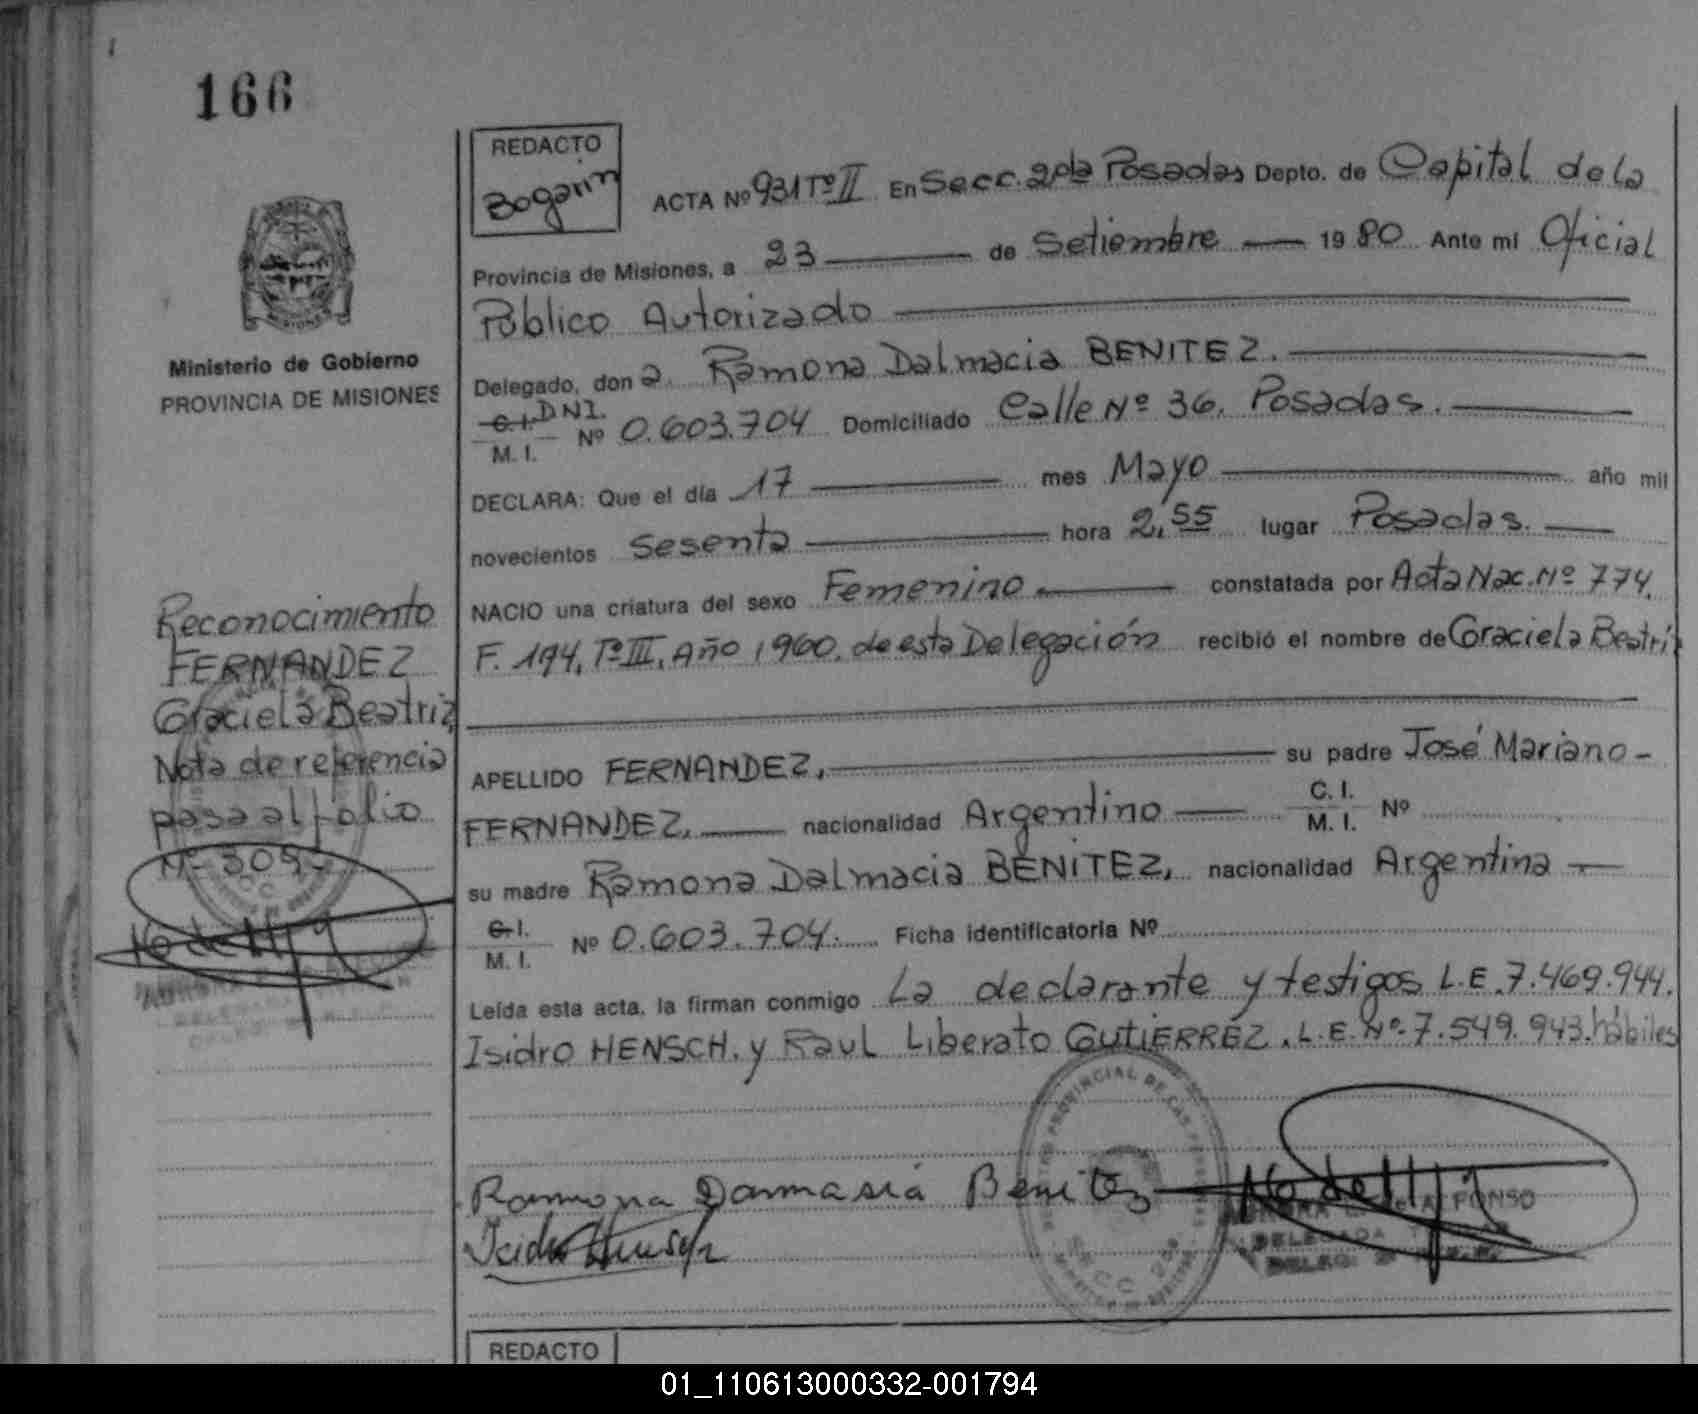 166
REDACTO
Bogarin
ACTA Nº 931 Tº II En Secc. 2da Posadas Depto. de Capital de la
Provincia de Misiones, a 23 de Setiembre 1980 Ante mi Oficial
Público Autorizado
Delegado, don a. Ramona Dalmacia BENITEZ.
C.I. DNI.
M. I. Nº 0.603.704 Domiciliado Calle Nº 36. Posadas.
DECLARA: Que el día 17 mes Mayo año mil
novecientos sesenta hora 2,55 lugar Posadas.
NACIO una criatura del sexo Femenino constatada por Acta Nac. Nº 774.
F. 194, Tº III, Año 1960. de esta Delegación recibió el nombre de Graciela Beatriz
APELLIDO FERNANDEZ, su padre José Mariano
FERNANDEZ, nacionalidad Argentino C. I. M. I. Nº
su madre Ramona Dalmacia BENITEZ, nacionalidad Argentina
C.I. M. I. Nº 0.603.704. Ficha identificatoria Nº
Leída esta acta, la firman conmigo La declarante y testigos L.E. 7.469.944.
Isidro HENSCH. y Raul Liberato GUTIERREZ. L.E. Nº 7.549.943. hábiles
Ramona Damasia Benitez
Isidro Hensch
REGISTRO PROVINCIAL DE LAS PERSONAS
SECC. 2da
ALFONSO
DELEGADA
DELEG. 2ª
Ministerio de Gobierno
PROVINCIA DE MISIONES
Reconocimiento
FERNANDEZ
Graciela Beatriz
Nota de referencia
pasa al folio
Nº 309
REDACTO
01_110613000332-001794